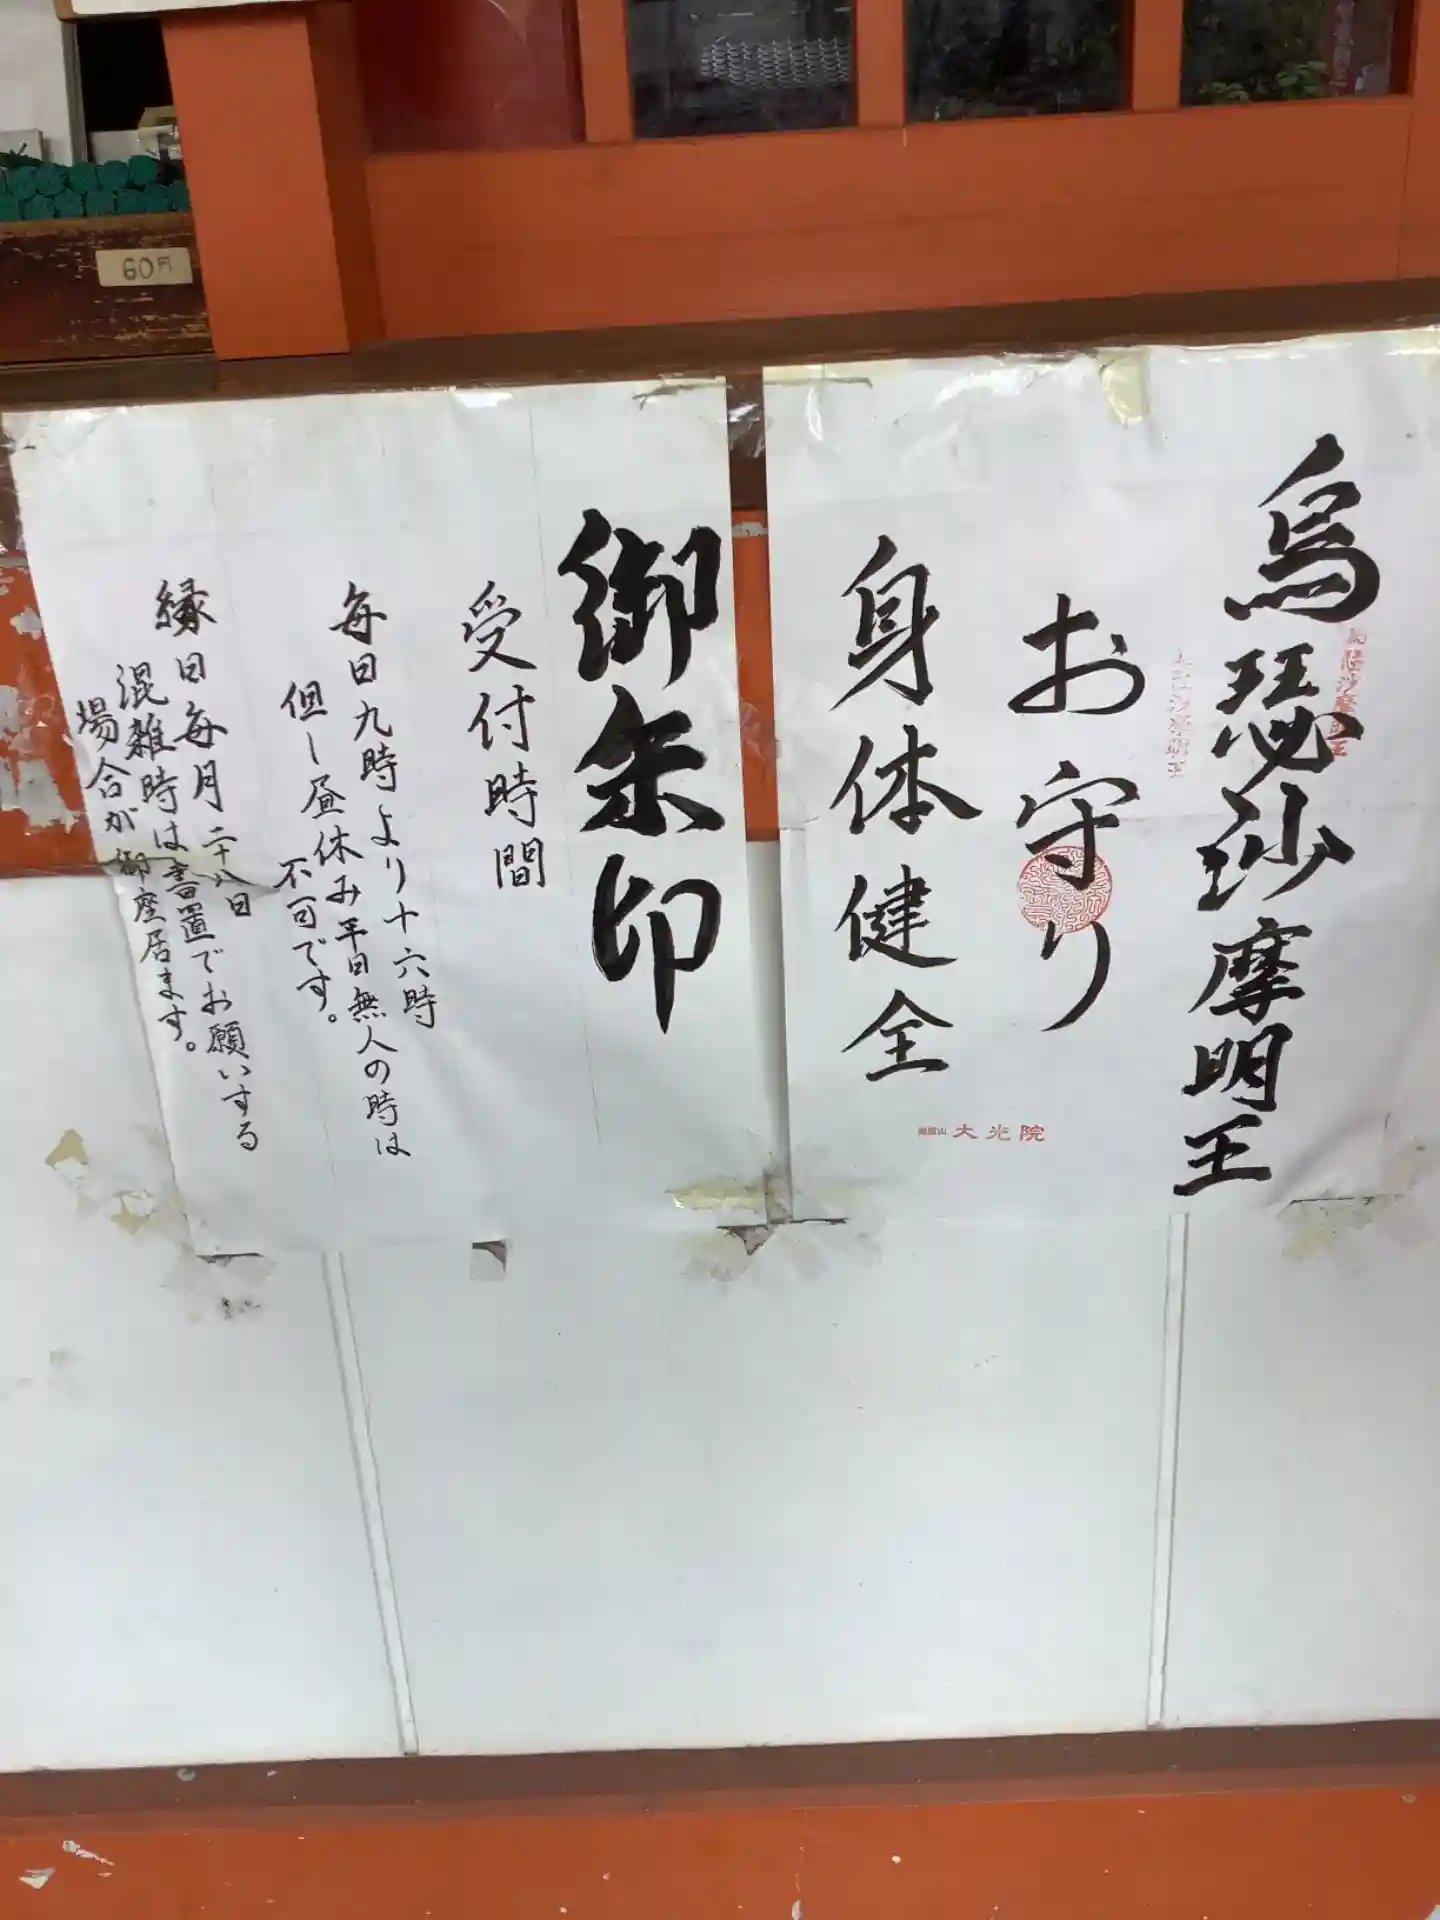 烏瑟沙摩明王
お守り
身体健全
大光院
御朱印
受付時間
毎日九時より十六時
但し昼休み平日無人の時は
不可です。
縁日毎月二十八日
混雑時は書置でお願いする
場合が御座居ます。
60円